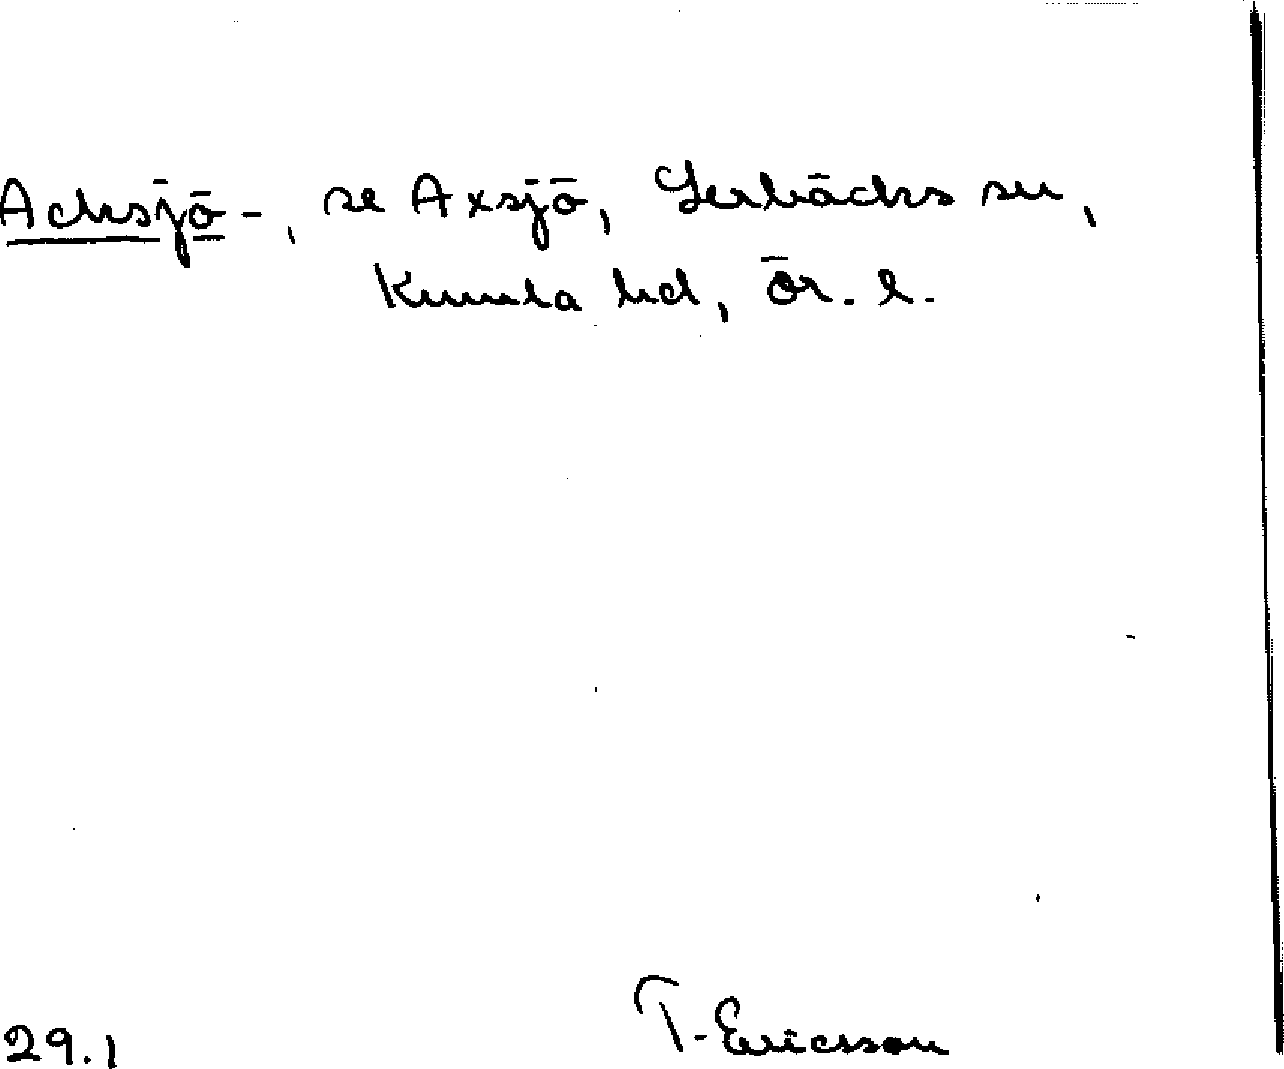 Acksjö-, se Axsjö, Lerbäcks sn,
Kumla hd, Ör. l.
29.1 T. Ericsson